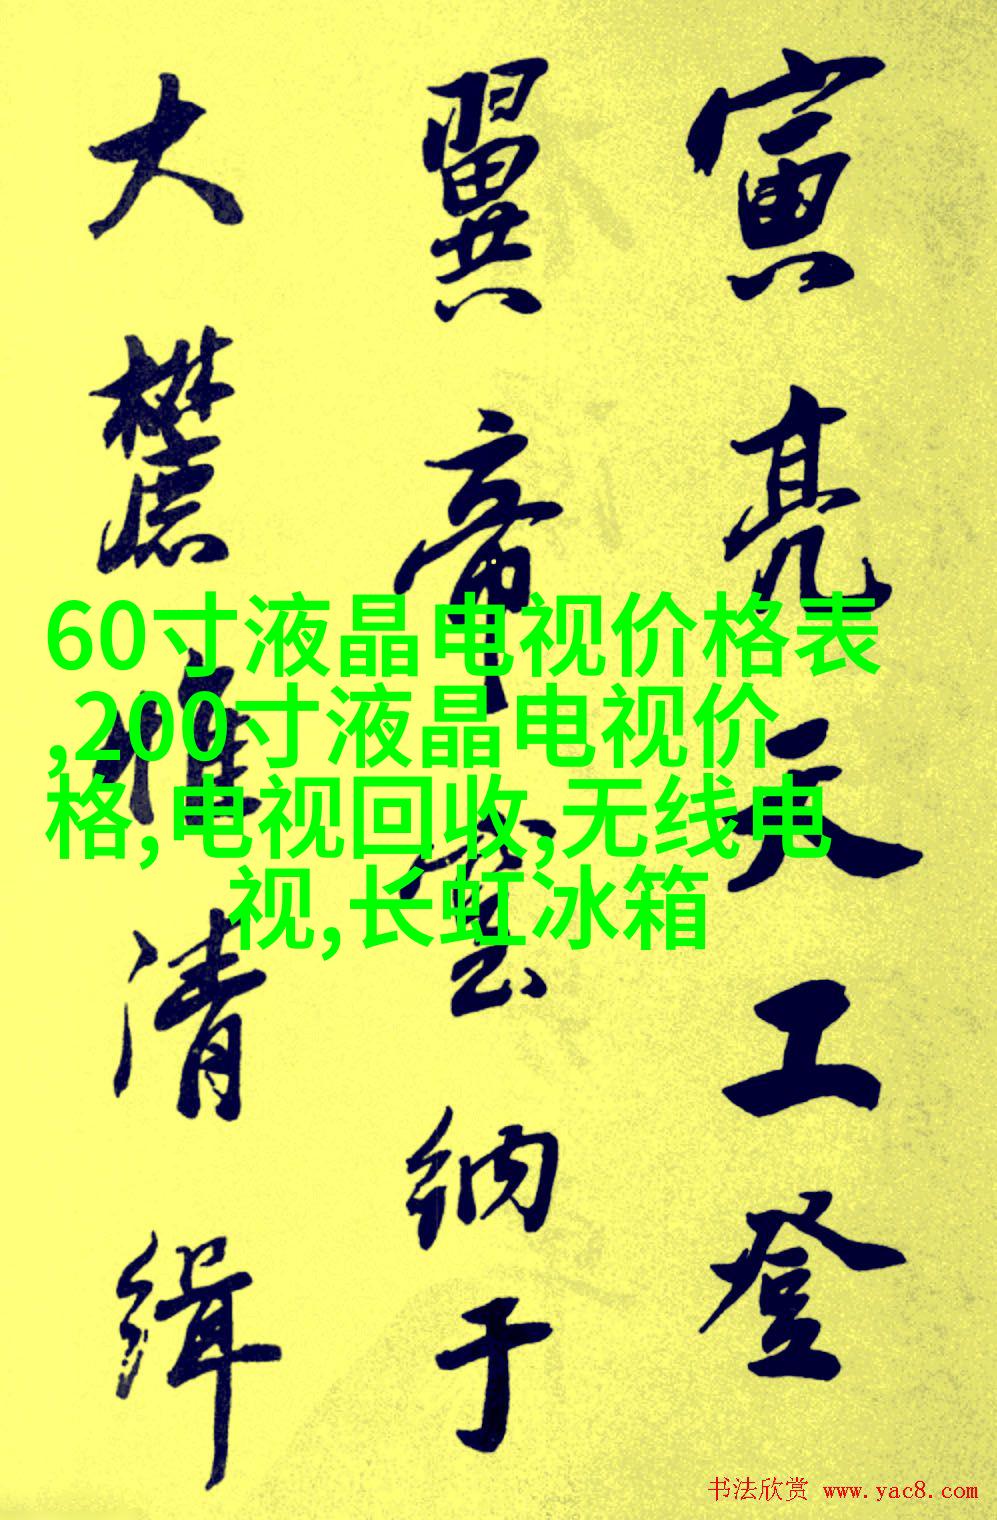 寅亮天工登
翼帝室納于
大麓惟清緝
60寸液晶电视价格表
,200寸液晶电视价
格,电视回收,无线电
视,长虹冰箱
书法欣赏 www.yac8.com